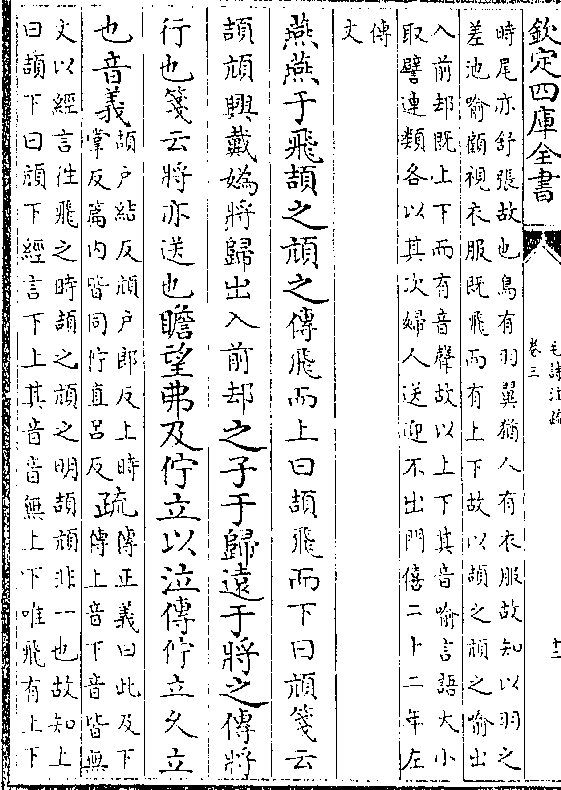 欽定四庫全書
毛詩注疏
卷三
十二
時尾亦舒張故也鳥有羽翼猶人有衣服故知以羽之
差池喻顧視衣服既飛而有上下故以頡之頏之喻出
入前却既上下而有音聲故以上下其音喻言語大小
取譬連類各以其次婦人送迎不出門僖二十二年左
傳
文
燕燕于飛頡之頏之傳飛而上曰頡飛而下曰頏箋云
頡頏興戴嬀將歸出入前却之子于歸遠于將之傳將
行也箋云將亦送也瞻望弗及佇立以泣傳佇立久立
也音義頡户結反頏户郎反上時
掌反篇内皆同佇直呂反疏傳正義曰此及下
傳上音下音皆無
文以經言往飛之時頡之頏之明頡頏非一也故知上
曰頡下曰頏下經言下上其音音無上下唯飛有上下